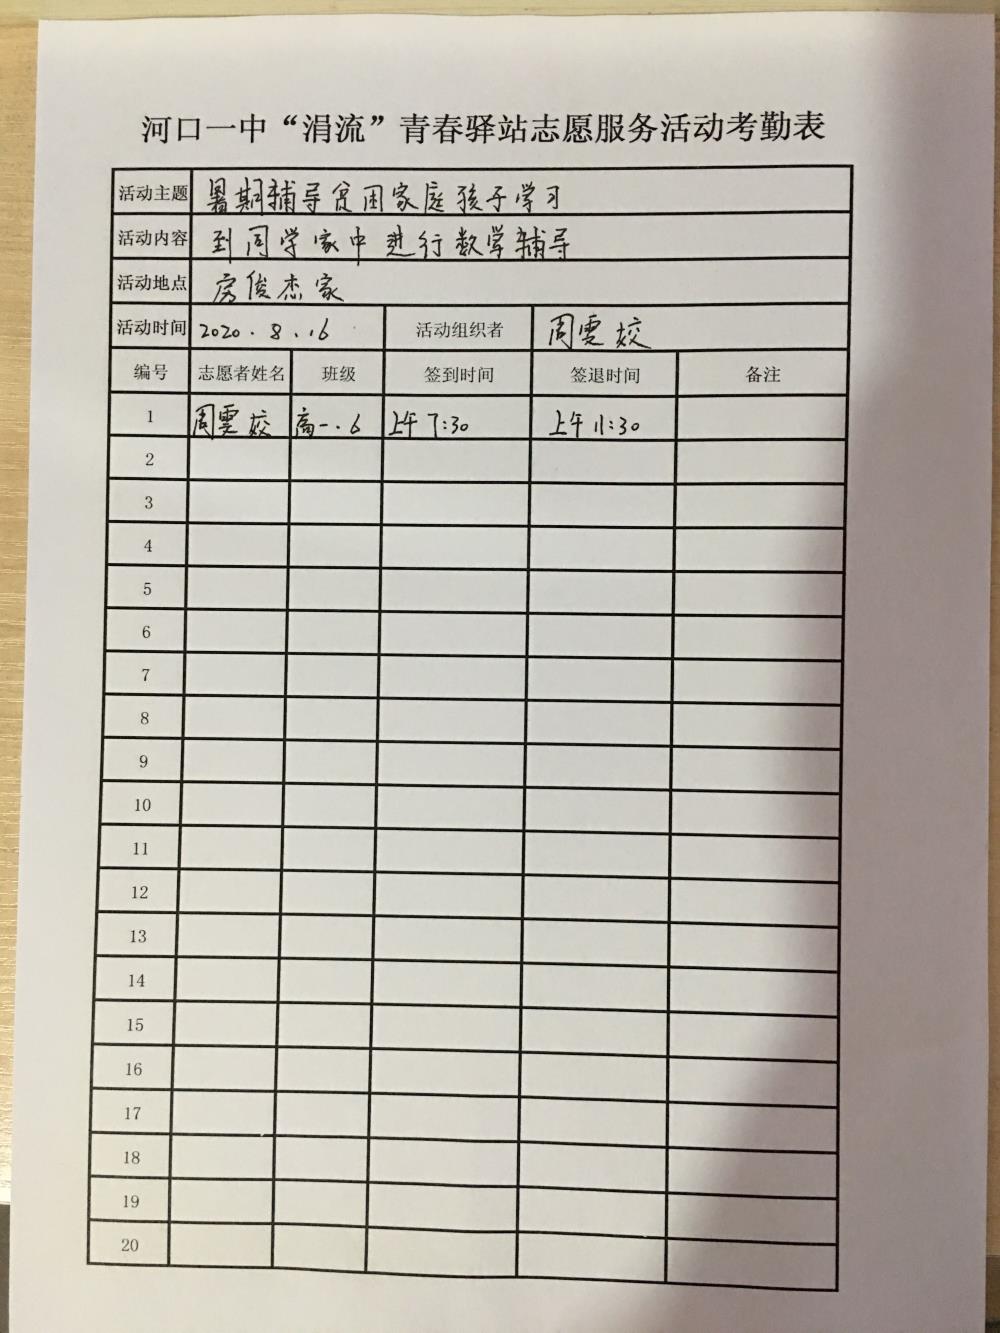 河口一中“涓流”青春驿站志愿服务活动考勤表
活动主题 暑期辅导贫困家庭孩子学习
活动内容 到同学家中进行数学辅导
活动地点 房俊杰家
活动时间 2020.8.16 活动组织者 周雯姣
编号 志愿者姓名 班级 签到时间 签退时间 备注
1 周雯姣 高一.6 上午7:30 上午11:30
2
3
4
5
6
7
8
9
10
11
12
13
14
15
16
17
18
19
20